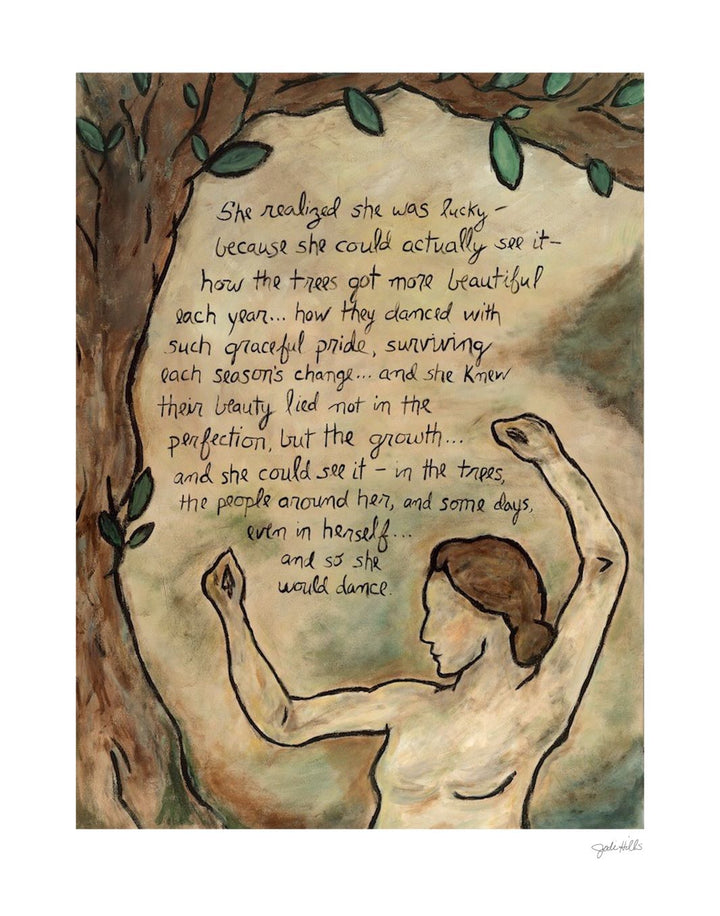 She realized she was lucky -
because she could actually see it -
how the trees got more beautiful
each year... how they danced with
such graceful pride, surviving
each season's change... and she knew
their beauty lied not in the
perfection, but the growth...
and she could see it - in the trees,
the people around her, and some days,
even in herself...
and so she
would dance.